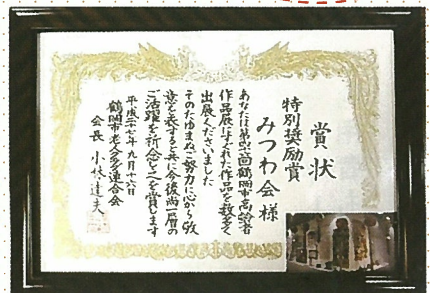 賞状
特別奨励賞
みつわ会様
あなたは第 回鶴岡市高齢者
作品展にすぐれた作品を数多く
出展くださいました
そのたゆまぬご努力に心から敬
意を表すると共に今後尚一層の
ご活躍を祈念しこれを賞します
平成二十七年九月十六日
鶴岡市老人クラブ連合会
会長 小林達夫